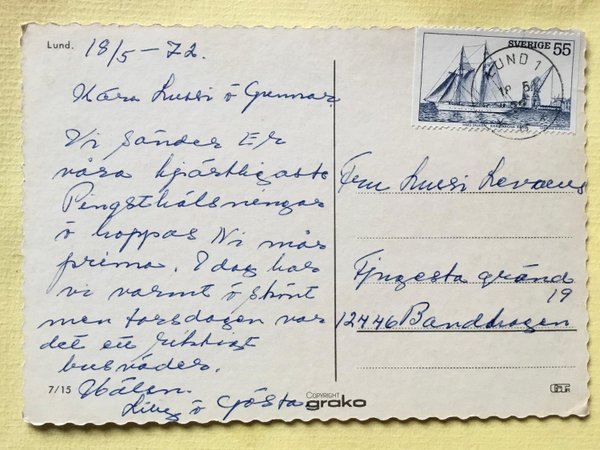 Lund.
18/5-72.
Kära Lussi ö Gunnar.
Vi sänder Er
våra hjärtligaste
Pingsthälsningar
ö hoppas Ni mår
prima. Idag har
vi varmt ö skönt
men torsdagen var
det ett riktigt
busväder.
Hälsn.
ö Gösta
7/15
COPYRIGHT
grako
SVERIGE 55
LUND 1
Fru Lussi
gränd
19
12446 Bandhagen